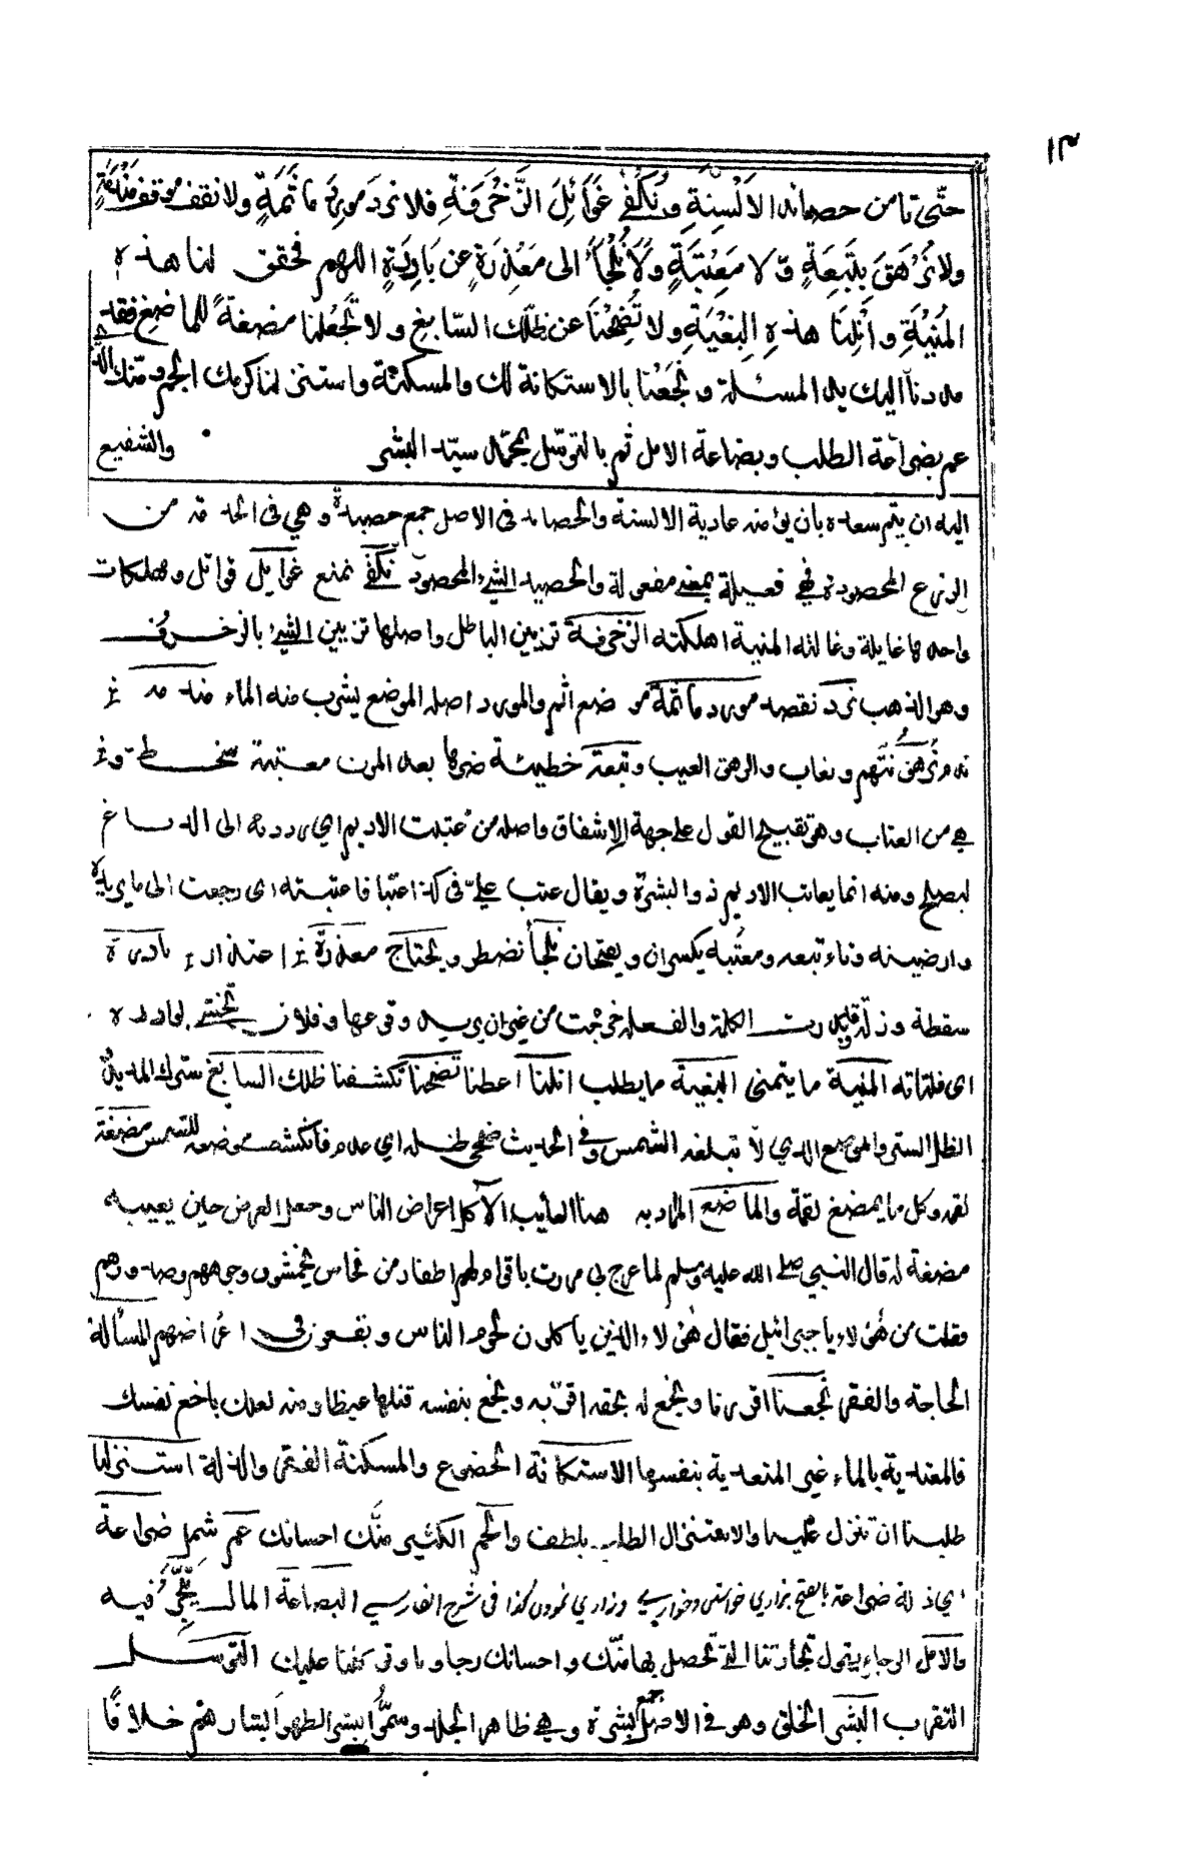 ١٣
حتّى نامن حصائد الاَلْسِنَةِ وَنُكْفٰى غَوَائِلَ الزَّخْرَفَةِ فلا نرِدَ مورِدَ مَأثَمَةٍ ولا نقف موقف مَنْدَمَةٍ
ولا نُرْهَقَ بِتَبِعَةٍ وّلا مَعْتَبَةٍ وَلَا نُلْجَأَ الى مَعْذِرَةٍ عن بَادِرَةٍ اللهم فحقق لنا هذه
المُنْيَةَ وانِلنَا هذه البُغْيَةَ ولا تُضْحِنَا عن ظلّك السّابغ ولا تَجْعَلْنا مضغةً للماضِغ فقد
مددنا اليك يد المسئلة وبَخَعْنا بالاستكانة لك والمسكنة واستنزلنا كرمك الجم ومنّك الذى
عم بضراعة الطلب وبضاعة الامل ثم بالتوسّل بمحمّد سيّد البشر والشفيع
اليه ان يتم سعده بان يؤمنه عادية الالسنة والحصائد فى الاصل جمع حصيدة وهي فى الحد قد من
الزرع المحصودة فهى فعيلة بمعنى مفعولة والحصيد الشيئ المحصود نكفٰى نمنع غوائل قواتل ومهلكات
واحدها غايلة وغالته المنية اهلكته الزخرفة تزيين الباطل واصلها تزيين الشيئ بالزخرف
وهو الذهب نرد نقصد مورد مأثمة موضع اثم والمورد اصله الموضع يشرب منه الماء مندمة
ندم نرهق نتهم ونعاب والرهق العيب وتبعة خطيئة ضرها بعد الموت معتبة سخط و
هي من العتاب وهو تقبيح القول على جهة الاشفاق واصله من عتبت الاديم اي رددته الى الدباغ
ليصلح ومنه انما يعاتب الاديم ذو البشرة ويقال عتب عليّ فى كذا عتبا فاعتبته اى رجعت الى ما يريده
وارضيته وتاء تبعه ومعتبه يكسران ويفتحان نلجأ نضطر ونحتاج معذرة اعتذار بادرة
سقطة وزلة قيل بدرت الكلمة والفعله خرجت من غير ان يريد وقوعها وفلان تخشى بوادره
اى فلتاته المنية ما يتمنى البغية ما يطلب انلنا اعطنا تضحنا تكشفنا ظلك السابغ سترك المديد
الظل الستر والموضع الذي لا تبلغه الشمس وفى الحديث ضحى ظله اي عدم فانكشف موضعه للشمس مضغة
لقمه وكل ما يمضغ لقمة والماضغ المراد به هنا العائب الآكل اعراض الناس وجعل العرض حين يعيبه
مضغة له قال النبي صلى الله عليه وسلم لما عرج بي مررت باقوام لهم اظفار من نحاس يخمشون وجوههم وصدورهم
فقلت من هؤلاء يا جبرائيل فقال هؤلاء الذين ياكلون لحوم الناس ويقعون في اعراضهم المسألة
الحاجة والفقر بخعنا اقررنا وبخع له بحقه اقرّ به وبخع بنفسه قتلها غيظا ومنه لعلك باخع نفسك
فالمتعدية بالباء غير المتعدية بنفسها الاستكانة الخضوع والمسكنة الفقر والذلة استنزلنا
طلبنا ان تنزل علينا والاستنزال الطلب بلطف والجم الكثير منّك احسانك عم شمل ضراعة
اي ذلة ضراعة بالفتح بزاري خواستن وخواري وزاري نمودن كذا فى شرح الفارسي البضاعة المال يتّجر فيه
والامل الرجاء يقول تجارتنا التى تحصل بها منّك واحسانك رجاونا وتوكلنا عليك التوسل
التقرب البشر الخلق وهو فى الاصل جمع بشرة وهي ظاهر الجلد وسمّوا بشر الظهور ابشارهم خلافا